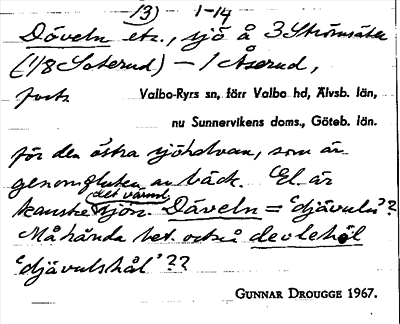 (3) 1-14
Däveln etc., sjö å 3 Strömsäter
(1/8 Soterud) – 1 Åserud,
forts.
Valbo-Ryrs sn, förr Valbo hd, Älvsb. län,
nu Sunnervikens doms., Göteb. län.
för den östra sjöhalvan, som är
genomfluten av bäck. El. är
det värmd.
kanske sjön Däveln = 'djävuln'?
Måhända bet. också devlehål
'djävulshål'??
GUNNAR DROUGGE 1967.